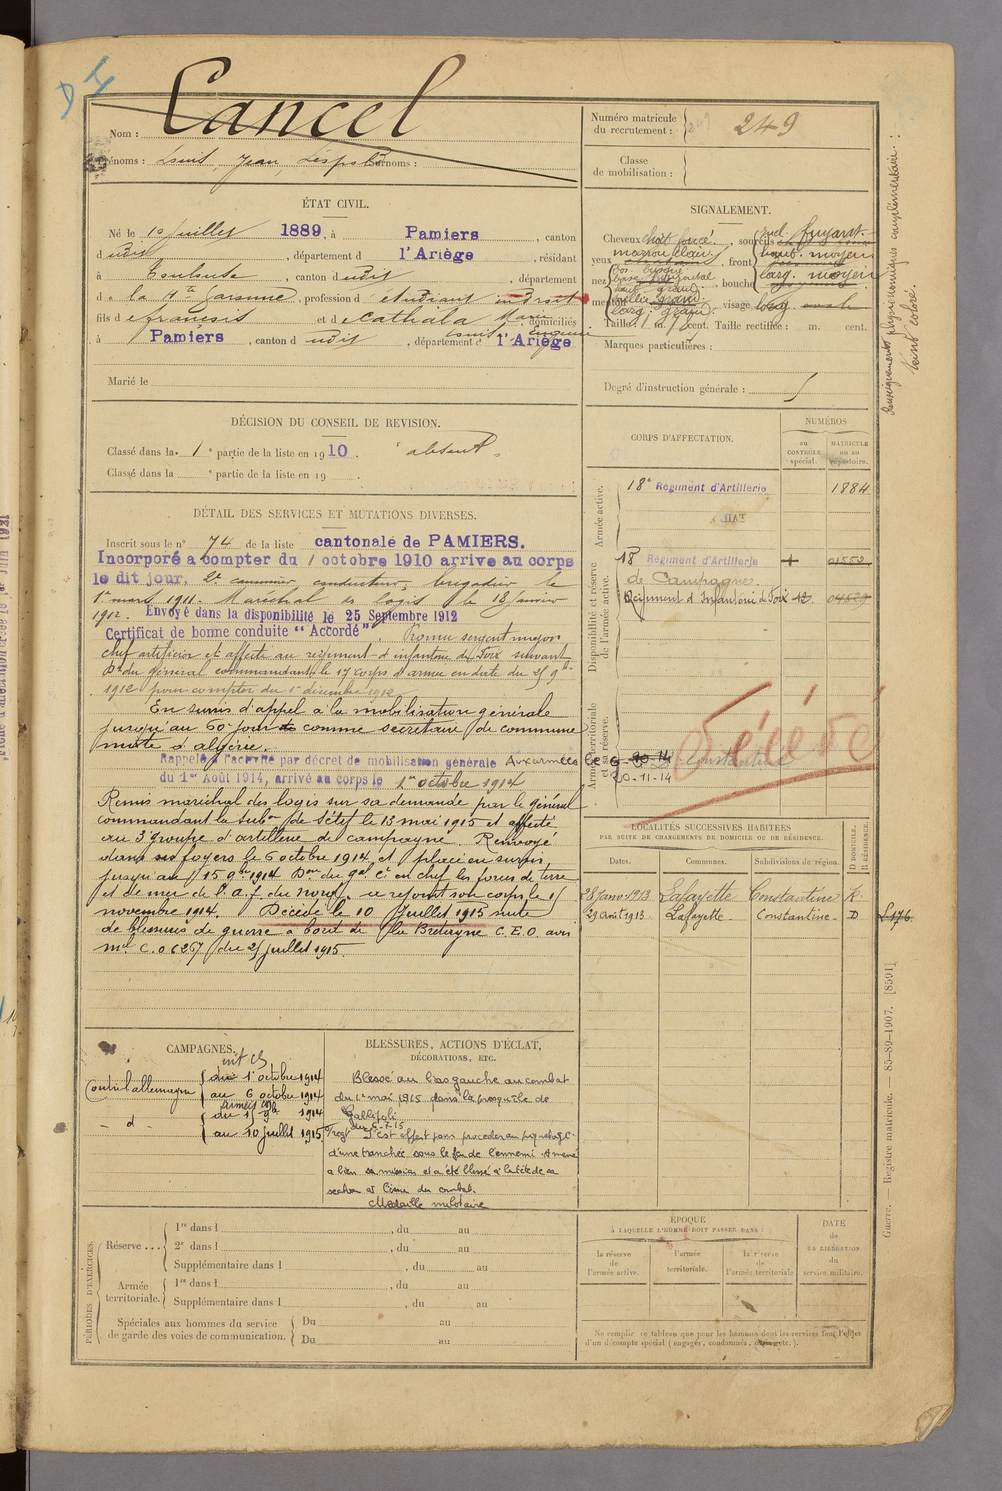 Nom : Cancel
Prénoms : Louis, Jean, Surnoms :
Numéro matricule
du recrutement : 249
Classe
de mobilisation :
ÉTAT CIVIL.
Né le 10 juillet 1889, à Pamiers, canton
dudit, département d l'Ariège, résidant
à Toulouse, canton dudit, département
de la Hte Garonne, profession d' étudiant en Droit
fils de françois et de Cathala Marie domiciliés
à Pamiers, canton dudit, département d l'Ariège
Marié le
SIGNALEMENT.
Cheveux chat. foncé, sourcils
yeux marron clair, front haut. moyen
larg. moyen
nez, bouche
menton, visage long
Taille : 1 m. cent. Taille rectifiée : m. cent.
Marques particulières :
Degré d'instruction générale :
Renseignements physionomiques complémentaires :
teint coloré.
DÉCISION DU CONSEIL DE REVISION.
Classé dans la 1e partie de la liste en 1910. absent.
Classé dans la e partie de la liste en 19 .
DÉTAIL DES SERVICES ET MUTATIONS DIVERSES.
Inscrit sous le n° 74 de la liste cantonale de PAMIERS.
Incorporé à compter du 1 octobre 1910 arrivé au corps
le dit jour, 2e canonnier conducteur, brigadier le
1er mars 1911. Maréchal des logis le 18 janvier
1912. Envoyé dans la disponibilité le 25 Septembre 1912
Certificat de bonne conduite "Accordé". Promu sergent major
chef artificier et affecté au régiment d'infanterie de Foix suivant
Don du général commandant le 17 corps d'armée en date du 25 9bre
1912 pour compter du 1er décembre 1912
En sursis d'appel à la mobilisation générale
jusqu'au 60e jour comme secrétaire de commune
mixte d'algérie.
Rappelé à l'activité par décret de mobilisation générale Aux armées le
du 1er Août 1914, arrivé au corps le 1er octobre 1914
Remis maréchal des logis sur sa demande par le général
commandant la subon de Sétif le 13 mai 1915 et affecté
au 3e groupe d'artillerie de campagne Renvoyé
dans ses foyers le 6 octobre 1914 et placé en sursis
jusqu'au 15 9bre 1914 Don du gal ct en chef les forces de terre
et de mer de l'a. f. du nord, a rejoint son corps le 15
novembre 1914. Décédé le 10 juillet 1915 suite
de blessures de guerre à bord de la Bretagne C.E.O. avis
mel C.O 6267 du 25 juillet 1915.
CORPS D'AFFECTATION.
NUMÉROS
au
CONTRÔLE
spécial.
MATRICULE
ou au
répertoire.
Armée active.
18e Régiment d'Artillerie 1884
Disponibilité et réserve
de l'armée active.
18 Régiment d'Artillerie 01552
de Campagne.
Régiment d'Infanterie de Foix 12
Armée territoriale
et sa réserve.
20-11-14
Constantine
Décédé
LOCALITÉS SUCCESSIVES HABITÉES
PAR SUITE DE CHANGEMENTS DE DOMICILE OU DE RÉSIDENCE.
Dates. Communes. Subdivisions de région. D DOMICILE. R RÉSIDENCE.
28 Janv 1913 Lafayette Constantine R.
29 août 1913 Lafayette Constantine D
L 176
CAMPAGNES.
int CS
Contre l'allemagne du 1 octobre 1914
au 6 octobre 1914
armées
- d° - du 15 9bre 1914
au 10 juillet 1915
BLESSURES, ACTIONS D'ÉCLAT,
DÉCORATIONS, ETC.
Blessé au bras gauche au combat
du 1er mai 1915 dans la presqu'île de
Gallipoli
S'est offert pour procéder au piquetage
d'une tranchée sous le feu de l'ennemi. A mené
à bien sa mission et a été blessé à la tête de sa
section à l'issue du combat.
Médaille militaire
PÉRIODES D'EXERCICES.
Réserve ...
1re dans l , du au
2e dans l , du au
Supplémentaire dans l , du au
Armée
territoriale.
1re dans l , du au
Supplémentaire dans l , du au
Spéciales aux hommes du service
de garde des voies de communication.
Du au
Du au
ÉPOQUE
À LAQUELLE L'HOMME DOIT PASSER DANS :
la réserve
de
l'armée active.
l'armée
territoriale.
la réserve
de
l'armée territoriale
DATE
de
LA LIBÉRATION
du
service militaire.
Ne remplir ce tableau que pour les hommes dont les services font l'objet
d'un décompte spécial (engagés, condamnés, etc.).
Guerre. — Registre matricule. — 85-89-1907. [8591]